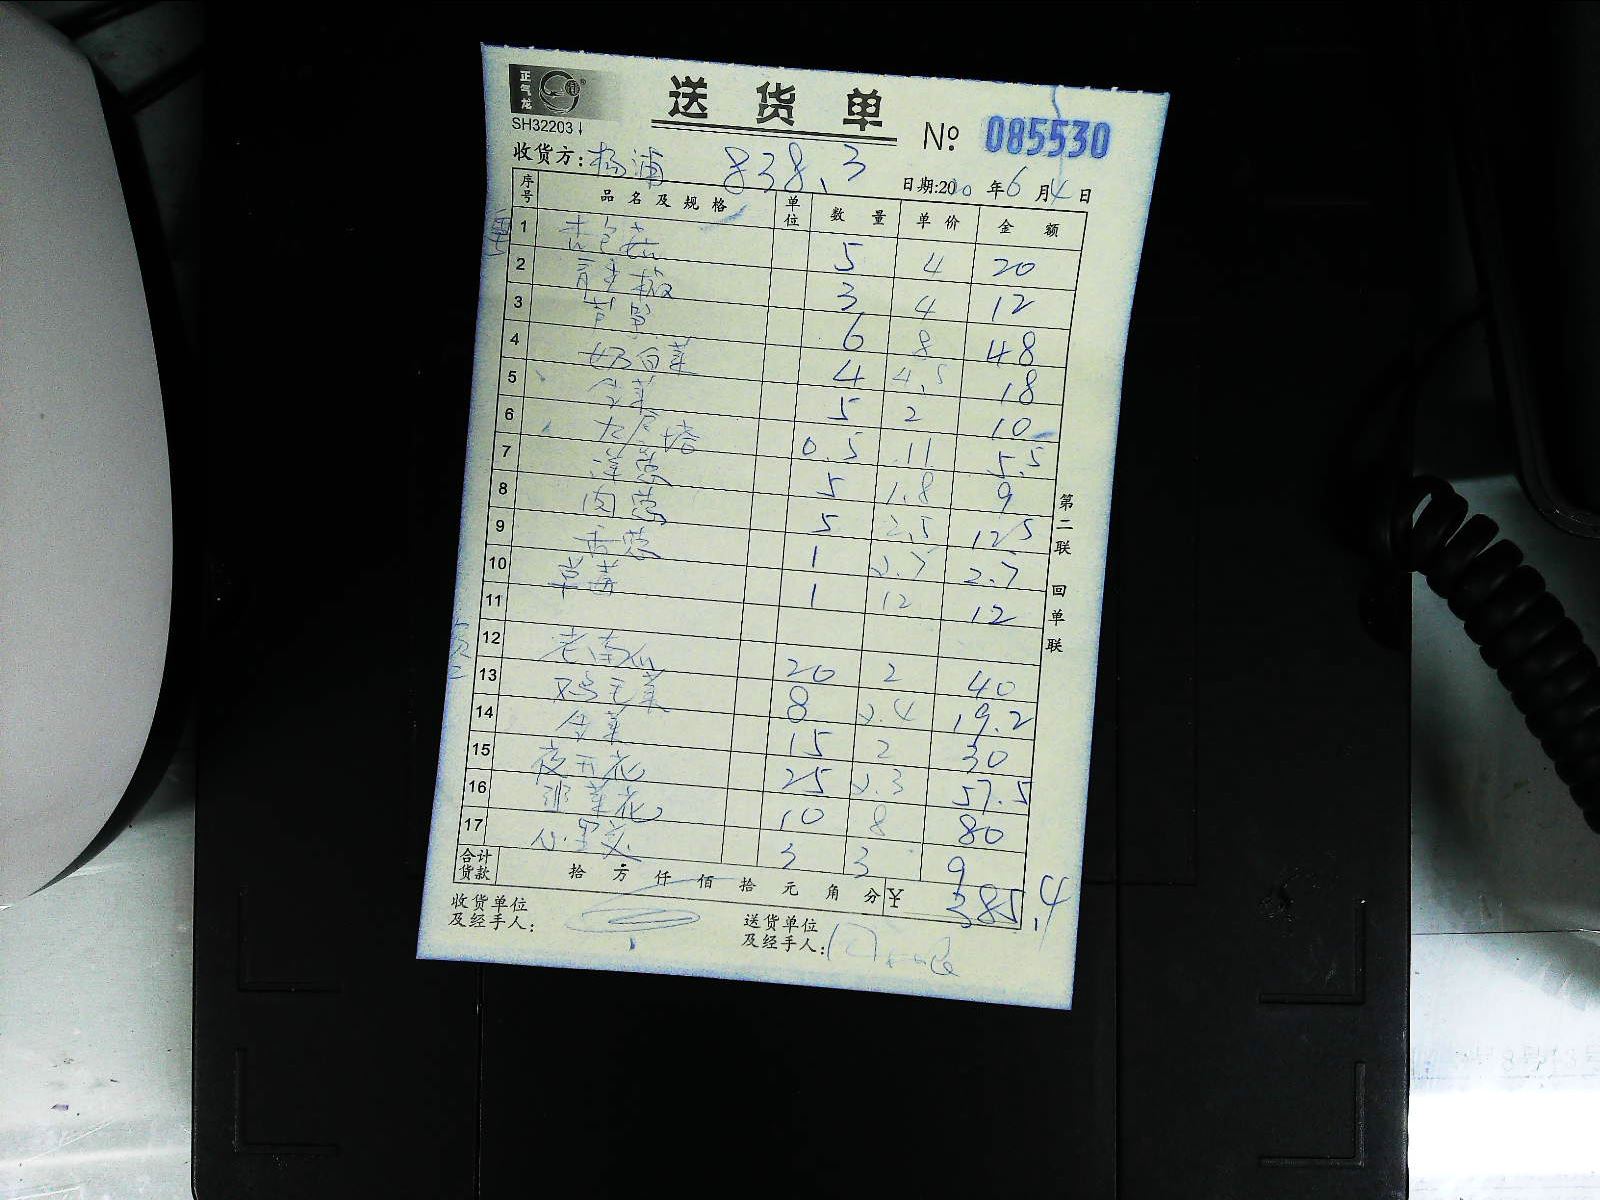 正气龙
送货单
SH32203
№: 085530
收货方: 杨浦 838.3 日期:20 年6月4日
序号 品名及规格 单位 数量 单价 金额
1 杏包菇 5 4 20
2 3 4 12
3 芦笋 6 8 48
4 奶白菜 4 4.5 18
5 生菜 5 2 10
6 九层塔 0.5 11 5.5
7 洋葱 5 1.8 9
8 肉葱 5 2.5 12.5
9 香葱 1 2.7 2.7
10 草莓 1 12 12
11
12 老南瓜 20 2 40
13 鸡毛菜 8 2.4 19.2
14 生菜 15 2 30
15 夜开花 25 2.3 57.5
16 菜花 10 8 80
17 3 3 9
合计货款 拾 万 仟 佰 拾 元 角 分 ¥ 385.4
收货单位及经手人:
送货单位及经手人:
第二联 回单联